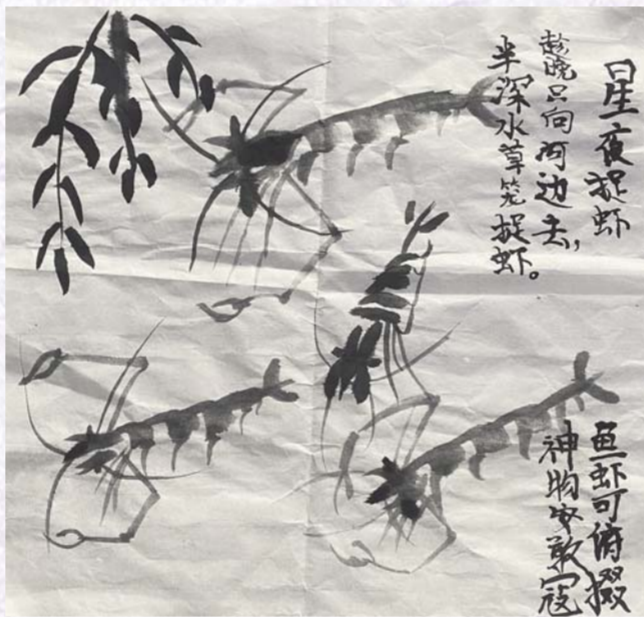 星夜捉虾
趁晓只向河边去,
半深水草笼捉虾。
鱼虾可俯掇
神物安敢寇